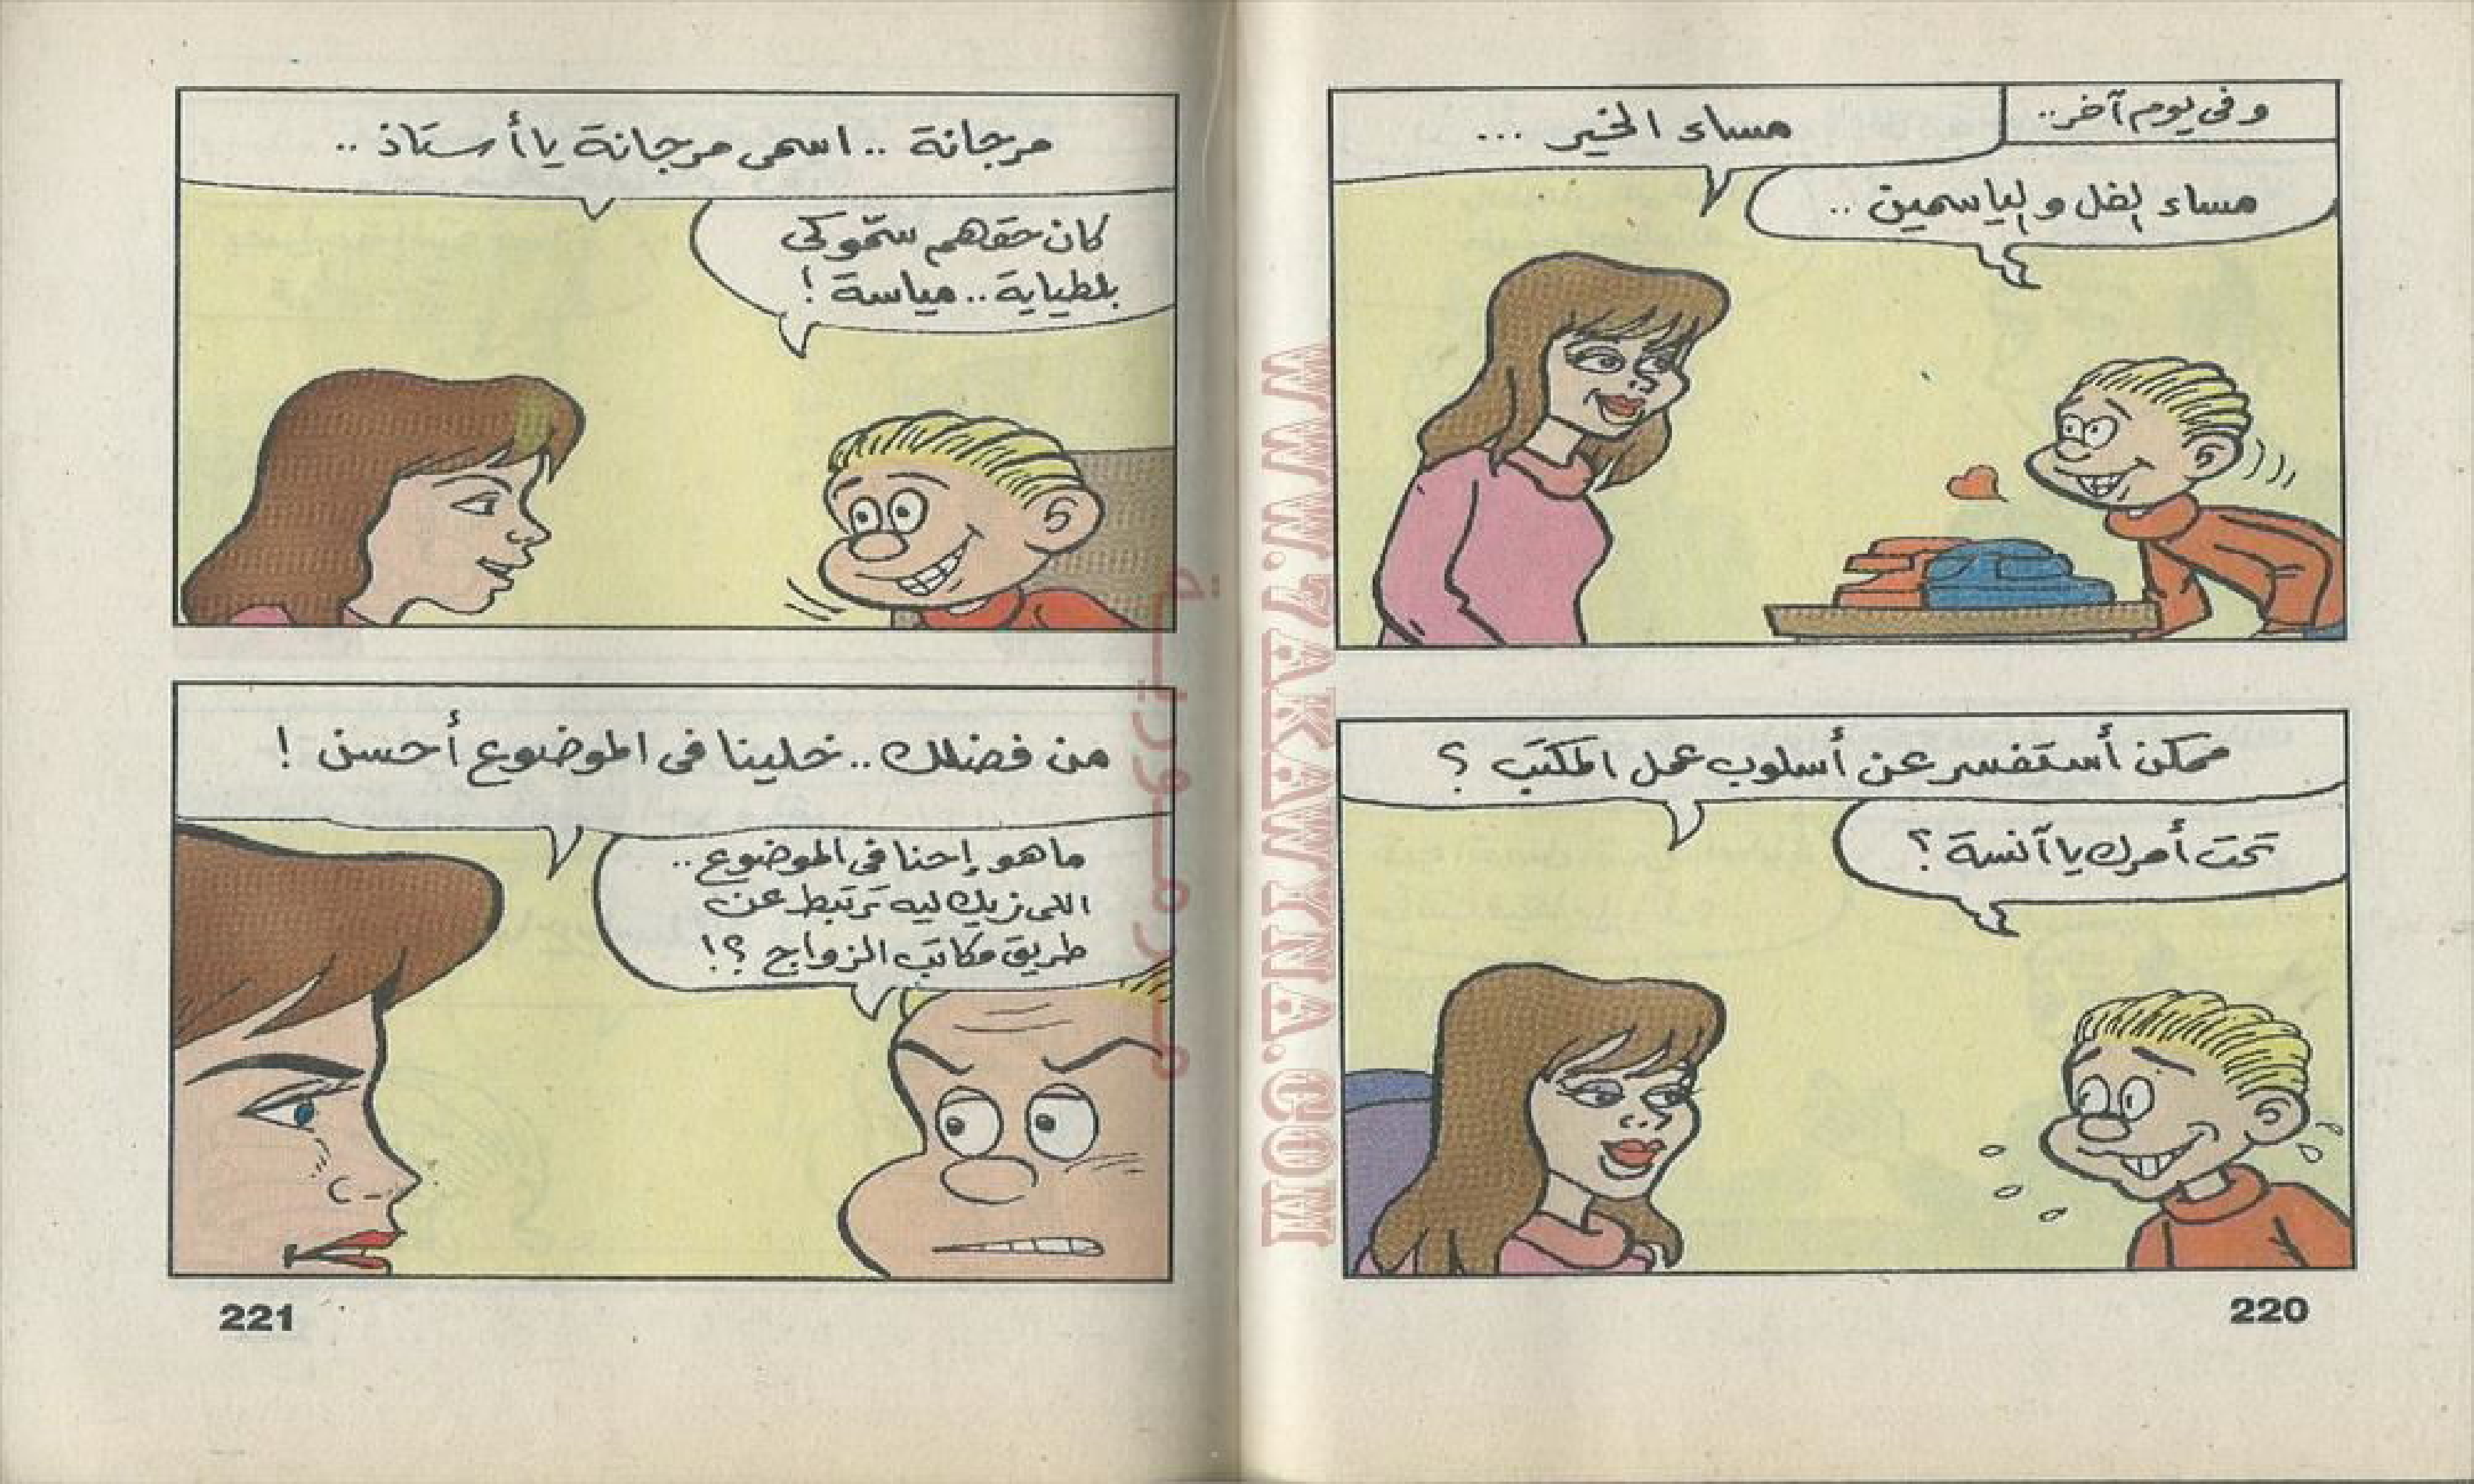 وفى يوم آخر..
مساء الخير ...
مساء الفل والياسمين ..
ممكن أستفسر عن أسلوب عمل المكتب ؟
تحت أمرك يا آنسة ؟
220
مرجانة .. اسمى مرجانة يا أستاذ ..
كان حقهم سمّوكى
بلطياية .. مياسة !
من فضلك .. خلينا فى الموضوع أحسن !
ما هو إحنا فى الموضوع ..
اللى زيك ليه ترتبط عن
طريق مكاتب الزواج ؟!
221
WWW.7AKAWYNA.COM